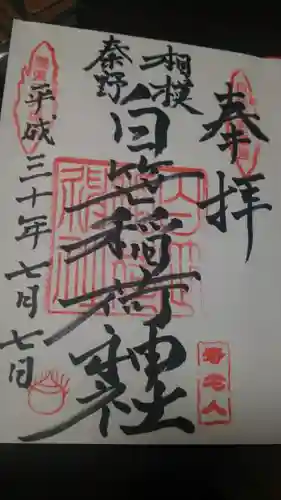 奉拝
相模
秦野
白笹稲荷神社
平成三十年七月七日